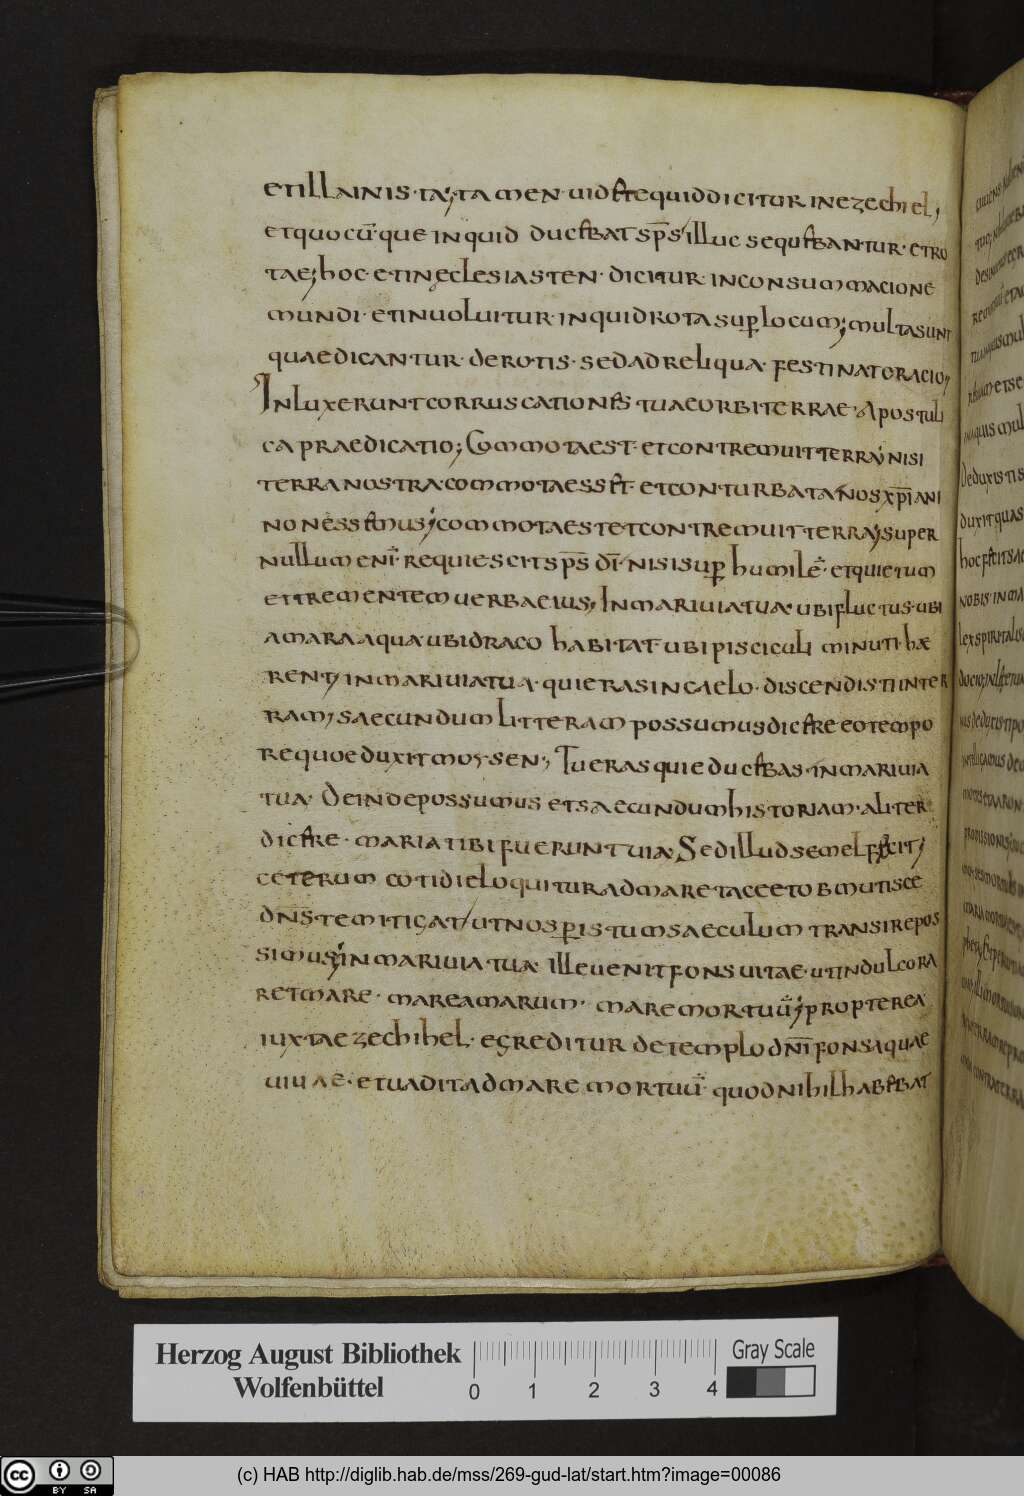 et illa in is· ta; tamen· uidete quid dicitur in ezechiel;
et quocū·que inquid ducebat sp̄s illuc sequebantur· et ro
tae; hoc· et in eclesiasten· dicitur· in consummacione
mundi· et inuoluitur· inquid rota sup locum; multa sunt
quae dicantur· de rotis· sed ad reliqua· festinat oracio;
Inluxerunt corruscationes tuae orbi terrae· Apostuli
ca praedicatio; Commota est· et contremuit terra; nisi
terra nostra· commota esset· et conturbata· nos xp̄iani
non essemus; commota est et contremuit terra; super
nullum enī· requiescit sp̄s dī· nisi sup humilē· et quietum
et trementem uerba eius; In mari uia tua· ubi fluctus· ubi
amara aqua ubi draco habitat· ubi pisciculi minuti· hæ
rent; in mari uia tua· qui eras in caelo· discendisti in ter
ram; saecundum litteram possumus dicere eo tempo
re quo eduxit moysen; Tu eras qui educebas· in mari uia
tua· Deinde possumus et saecundum historiam· aliter
dicere· maria tibi fuerunt uia· Sed illud semel fecit;
ceterum cotidie loquitur ad mare tace et obmutisce
dn̄s te mitigat; ut nos per istum saeculum transire pos
simus; in mari uia· tua· ille uenit fons uitae· ut indulcora
ret mare· mare amarum· mare mortuū; propterea
iuxta ezechihel· egreditur de templo dn̄i fons aquae
uiuae· et uadit ad mare mortuū· quod nihil habebat
Herzog August Bibliothek
Wolfenbüttel
0 1 2 3 4
Gray Scale
cc BY SA
(c) HAB http://diglib.hab.de/mss/269-gud-lat/start.htm?image=00086